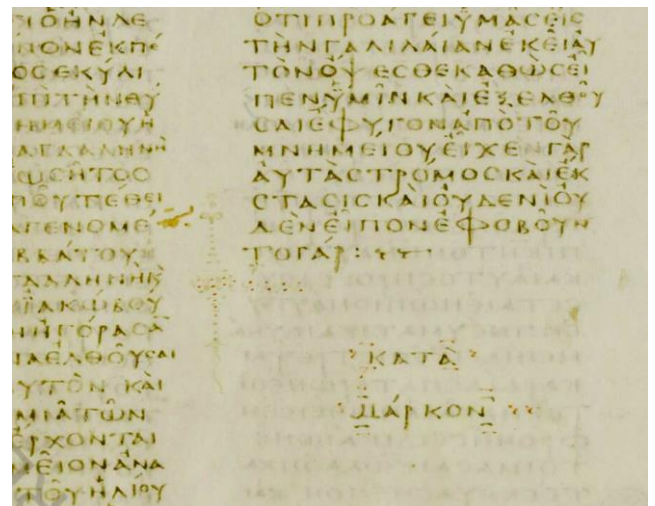 ΟΗΝΛΕ
ΝΟΝΕΚΠΕ
ΟϹΕΚΥΛΙ
ΠΙΤΗΝΘΥ
ΗΜΕΙΟΥΗ
ΑΓΔΑΛΗΝΗ
ΩϹΗΤΟϹ
ΠΟΥΤΕΘΕΙ
ΑΓΕΝΟΜΕ
ΒΒΑΤΟΥΗ
ΓΔΑΛΗΝΗΚ
ΙΑΚΩΒΟΥ
ΗΗΓΟΡΑϹΑ
ΝΑΕΛΘΟΥϹΑΙ
ΥΤΟΝΚΑΙ
ΜΙΑΤΩΝ
ΕΡΧΟΝΤΑΙ
ΜΕΙΟΝΑΝΑ
ΤΟΥΗΛΙΟΥ
ΟΤΙΠΡΟΑΓΕΙΥΜΑϹΕΙϹ
ΤΗΝΓΑΛΙΛΑΙΑΝΕΚΕΙΑΥ
ΤΟΝΟΨΕϹΘΕΚΑΘΩϹΕΙ
ΠΕΝΥΜΙΝΚΑΙΕΞΕΛΘΟΥ
ϹΑΙΕΦΥΓΟΝΑΠΟΤΟΥ
ΜΝΗΜΕΙΟΥΕΙΧΕΝΓΑΡ
ΑΥΤΑϹΤΡΟΜΟϹΚΑΙΕΚ
ϹΤΑϹΙϹΚΑΙΟΥΔΕΝΙΟΥ
ΔΕΝΕΙΠΟΝΕΦΟΒΟΥΝ
ΤΟΓΑΡ:
ΚΑΤΑ
ΜΑΡΚΟΝ